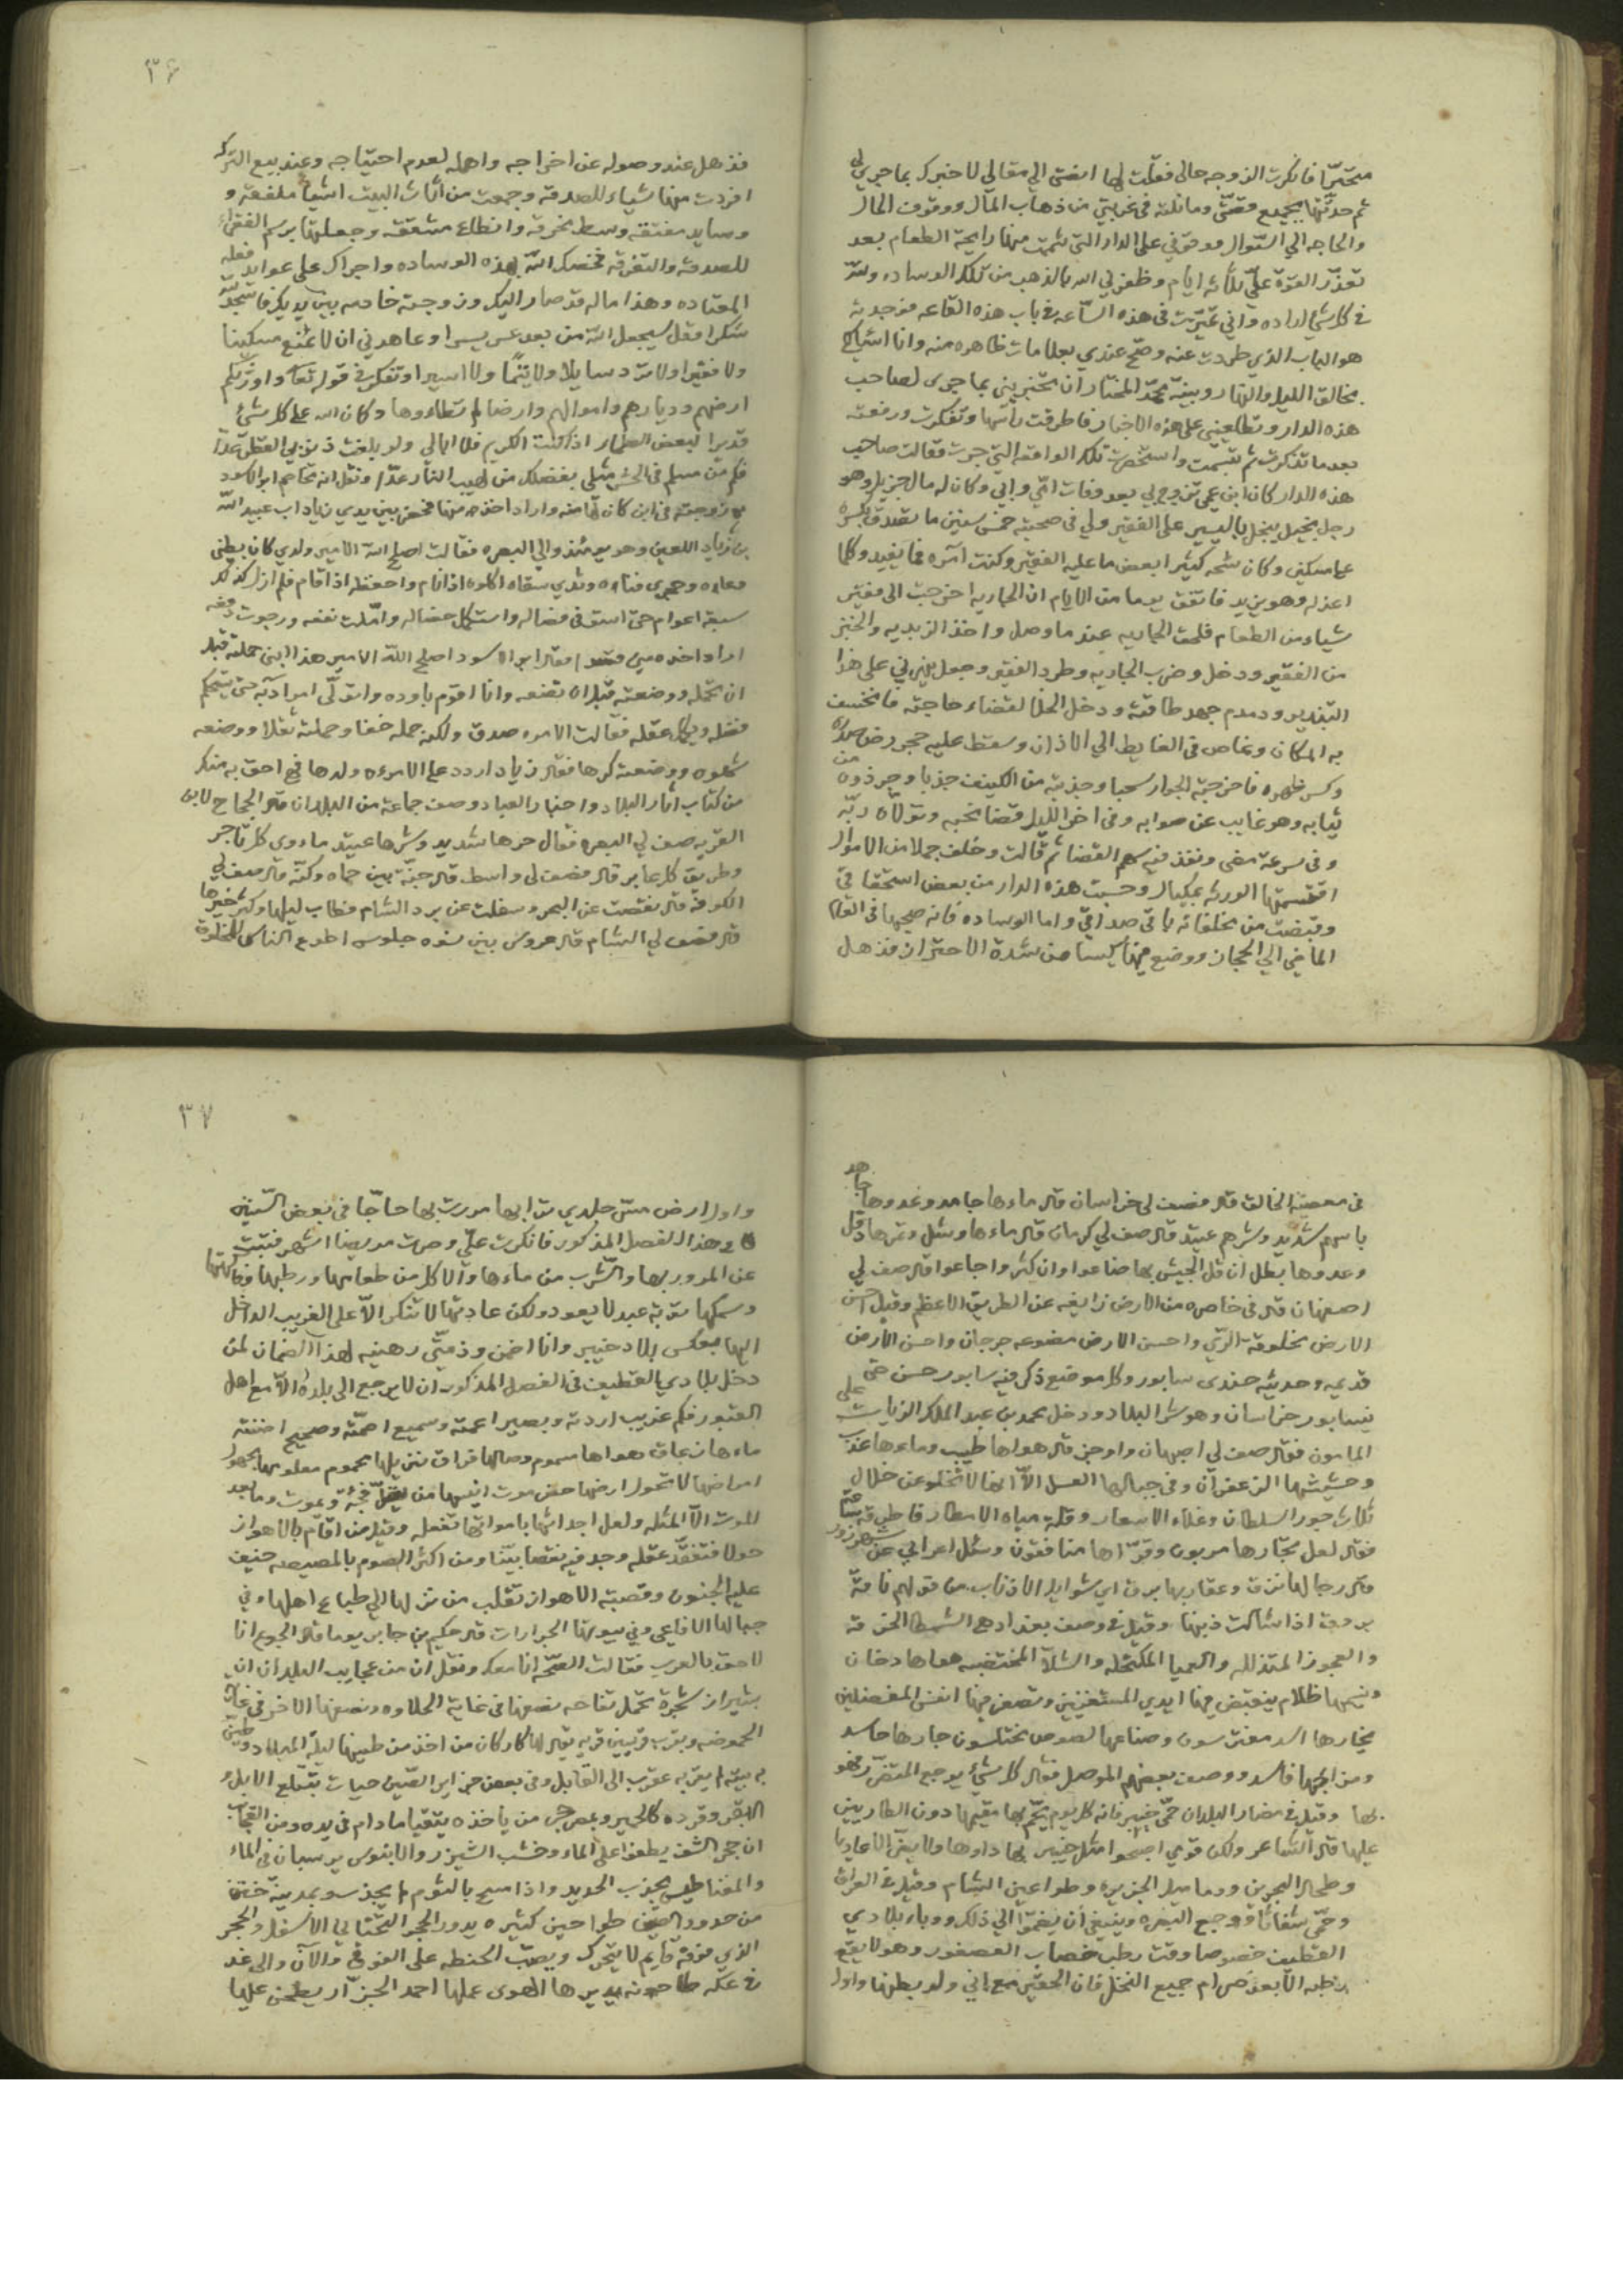 متحيّرا فانكرت الزوجه حالي فقلت لها انصتى الى مقالي لاخبرك بما جرى لي
ثم حدثتها بجميع قصتى وما نلته في غربتي من ذهاب المال ووقوف الحال
والحاجه الى السّوال ووقوفي على الدار التى شممت منها رايحة الطعام بعد
تعذّر القوة علىّ ثلاثه ايام وظفرني الله بالذهب من تلك الوساده ولله
في كل شي اراده واني تحيّرت فى هذه السّاعه في باب هذه القاعه فوجدته
هو الباب الذي طردت عنه وصح عندي بعلامات ظاهره منه وانا اسالك
بخالق الليل والنهار وبنبيّه محمّد المختار ان تخبريني بما جرى لصاحب
هذه الدار وتطلعيني على هذه الاخبار فاطرقت رأسها وتفكرت ورفعته
بعد ما تذكرت ثم تبسمت واستحضرت تلك الواقعه التى جرت فقالت صاحب
هذه الدار كان ابن عمي تزوج بي بعد وفات امّي وابي وكان له مال جزيل وهو
رجل بخيل يبخل باليسير على الفقير ولي في صحبته خمس سنين ما تصدق بكسره
على مسكين وكان شحه كثيرا بعض ما عليه الفقير وكنت آمره فما يفيد وكلما
اعذله وهو يزيد فاتفق يوما من الايام ان الجاريه اخرجت الى فقير
شياء من الطعام فلحق الجاريه عند ما وصل واخذ الزبديه والخبز
من الفقير ودخل وضرب الجاريه وطرد الفقير وجعل يلزمني على هذا
التبذير ودمدم جهد طاقته ودخل الخلا لقضاء حاجته فانخسف
به المكان وغاص فى الغايط الى الاذان وسقط عليه حجر رض صدره
وكسر ظهره فاخرجته الجوار سحبا وجذبته من الكنيف جذبا وجرذوه من
ثيابه وهو غايب عن صوابه وفى اخر الليل قضا نحبه وتولاه ربّه
وفى سرعة مضى ونفذ فيه سهم القضا ثم قالت وخلف جملا من الاموال
اقتسمتها الورثه بمكيال وحسبت هذه الدار من بعض استحقاقيّ
وقبضت من مخلفاته باقى صداقي واما الوساده فانه صحبها فى العام
الماضي الى الحجاز ووضع فيها كيسا من شدة الاحتراز فذهل
٣٦
فذهل عند وصوله عن اخراجه واهمله لعدم احتياجه وعند بيع التركه
افردت منها شياء للصدقه وجمعت من اثاث البيت اشيا ملفقه و
وسايد مفتقه وبسط مخرقه وانطاع مشققه وجعلتها برسم الفقراء
للصدقه والتفرقه فخصك الله بهذه الوساده واجراك على عوايد فضله
المعتاده وهذا ماله قد صار اليك وزوجته خادمه بين يديك فاسجد لله
شكرا وقل سيجعل الله من بعد عسر يسرا وعاهدني ان لا تمنع مسكينا
ولا فقيرا ولا ترد سايلا ولا يتيمًا ولا اسيرا وتفكر في قوله تعالى واورثكم
ارضهم وديارهم واموالهم وارضا لم تطاءوها وكان الله على كل شيء
قديرا لبعض الطعاير اذا كنت الكريم فلا ابالي ولو بلغت ذنوبي القطر عدّا
فكم من مسلم فى الحشر مثلي بفضلك من لهيب النار عدّا ونقل انه تخاصم ابو الاسود
مع زوجته في ابن كان لها منه واراد اخذه منها فحضر بين يدي زياد اب عبيد الله
بن زياد اللعين وهو يومئذ والي البصره فقالت اصلح الله الامير ولدي كان بطني
وعاده وحجري فناءه وثدي سقاه اكلوه اذا نام واحفظه اذا قام فلم ازل كذلك
سبعة اعوام حتى استوفى فصاله واستكمل خصاله واملت نفعه ورجوت دفعه
اراد اخذه مني قسرا فقال ابو الاسود اصلح الله الامير هذا ابني حملته قبل
ان تحمله ووضعته قبل ان تضعه وانا اقوم باوده واتولى امر ادبه حتى يستحكم
فضله ويكمل عقله فقالت الامره صدق ولكنه حمله خفا وحملته ثقلا ووضعه
شهوه ووضعته كرها فقال زياد اردد على الامرءه ولدها فهي احق به منك
من كتاب اثار البلاد واخبار العباد وصف جماعة من البلدان قال الحجاج لابن
القريه صف لي البصره فقال حرها شديد وشرها عتيد ماءوى كل تاجر
وطريق كل عابر قال فصف لى واسط قال جنّة بين حماه وكنّه قال فصف لي
الكوفه قال نقصت عن البحر وسفلت عن برد الشام فطاب ليلها وكثر خيرها
قال فصف لي الشام قال عروس بين نسوه جلوس اطوع الناس للمخلوق
فى معصية الخالق قال فصف لى خراسان قال ماءها جامد وعدوها جاهد
باسهم شديد وشرهم عتيد قال صف لي كرمان قال ماءها وشل وتمرها دقل
وعدوها بطل ان قل الجيش بها ضاعوا وان كثروا جاعوا قال صف لي
اصفهان قال فى خاصره من الارض زايغه عن الطريق الاعظم وقيل احسن
الارض مخلوقة الرّي واحسن الارض مصنوعه جرجان واحسن الارض
قديمه وحديثه جندى سابور وكل موضع ذكر فيه سابور حسن حتى
نيسابور خراسان وهو شر البلاد ودخل محمد بن عبد الملك الزيات على
المامون فقال صف لي اصبهان واوجز قال هواها طيب وماءها عذب
وحشيشها الزعفران وفى جبالها العسل الاّ انها لا تخلو عن خلال
ثلاث جور السلطان وغلاء الاسعار وقلة مياه الامطار فاطرق
فقال لعل تجارها مربون وقرّاءها منافقون وسئل اعرابي عن شهرزور
قال رجالها نزق وعقاربها برق اي شوايل الاذناب من قولهم ناقة
بروق اذا شالت ذنبها وقيل في وصف بغداد هي الشمطا الخرفة
والعجوز المتذلله والعميا المكتحله والشلآ المختضبه هواها دخان
ونسيمها ظلام ينقبض فيها ايدي المستغزين وتصغر فيها انفس المفضلين
تجارها اسد مفترسون وصناعها لصوص مختلسون جارها حاسد
ومزاجها فاسد ووصف بعضهم الموصل فقال كل شيء يوجع المتضرر فهو
بها وقيل في مضار البلدان حمّى خيبر فانه كل يوم يحم بها مقيمها دون الطاريين
عليها قال الشاعر ولكن قومي اصبحوا مثل خيبر بها داوها ولا يضر الاعاديا
وطحال البحرين ودماميل الجزيره وطواعين الشام وقيل في العراق
وحمّى شفاثا ووجع البصره وينبغي أن يضموا الى ذلك ووباء بلادي
القطيف خصوصا وقت رطب خصاب العصفور وهو لا يقع
رطبه الا بعد صرام جميع النخل فان الحقير مع اني ولد بطنها واول
٣٧
واول ارض مسّ جلدي ترابها مررت بها حاجّا فى بعض السّنين
في هذا الفصل المذكور فانكرت علىّ وصرت مريضا اشهر فتبت
عن المرور بها والشرب من ماءها والاكل من طعامها ورطبها وفاكهتها
وسمكها توبة عبد لا يعود ولكن عادتها لا تنكر الا على الغريب الداخل
اليها بعكس بلاد خيبر وانا اضمن وذمتّي رهينه لهذا الضمان لمن
دخل بلادي القطيف فى الفصل المذكور ان لا يرجع الى بلده الا مع اهل
القبور فكم غريب اردته وبصير اعمته وسميع اصمّته وصحيح اضنته
ماءها زعاق هواها سموم وصالها فراق نزيلها محموم معلومها مجهول
امراضها لا تحول ارضها حض موت انيسها من يقل فجئة ويموت وما بعد
الموت الا المثله ولعل اجداثها بامواتها تفعله وقيل من اقام بالاهواز
حولا فتفقّد عقله وجد فيه نقصا بيّنا ومن اكثر الصوم بالمصيصه خيف
عليه الجنون وقصبة الاهواز تقلب من نزلها الى طباع اهلها وفي
جبالها الافاعي وفي بيوتها الجرارات قال حكيم بن جابر يوما قال الجوع انا
لاحق بالعرب فقالت الصّحه انا معك ونقل ان من عجايب البلدان ان
بشيراز شجرة تحمل تفاحه نصفها فى غاية الحلاوه ونصفها الاخر في غاية
الحموضه وبقرب قزوين قريه يقال لها كاركان من اخذ من طينها ليلة الميلاد وطين
به بيته لم يقربه عقرب الى القابل وفى بعض جزاير الصّين حيات تبتلع الابل و
البقر وقرده كالحمير وبمصر حجر من ياخذه يتقيا ما دام في يده ومن العجايب
ان حجر الشف يطفوا على الماء وخشب الشيزر والابنوس يرسبان في الماء
والمغناطيس يجذب الحديد واذا مسح بالثوم لم يجذب وبمدينة ختن
من حدود الصين طواحين كثيره يدور الحجر التحتاني الاسفل والحجر
الذي فوقه قايم لا يتحرك ويصبّ الحنطه على الفوقى والان والى غد
في عكه طاحونه يديرها الهوى عملها احمد الجزّار يطحن عليها